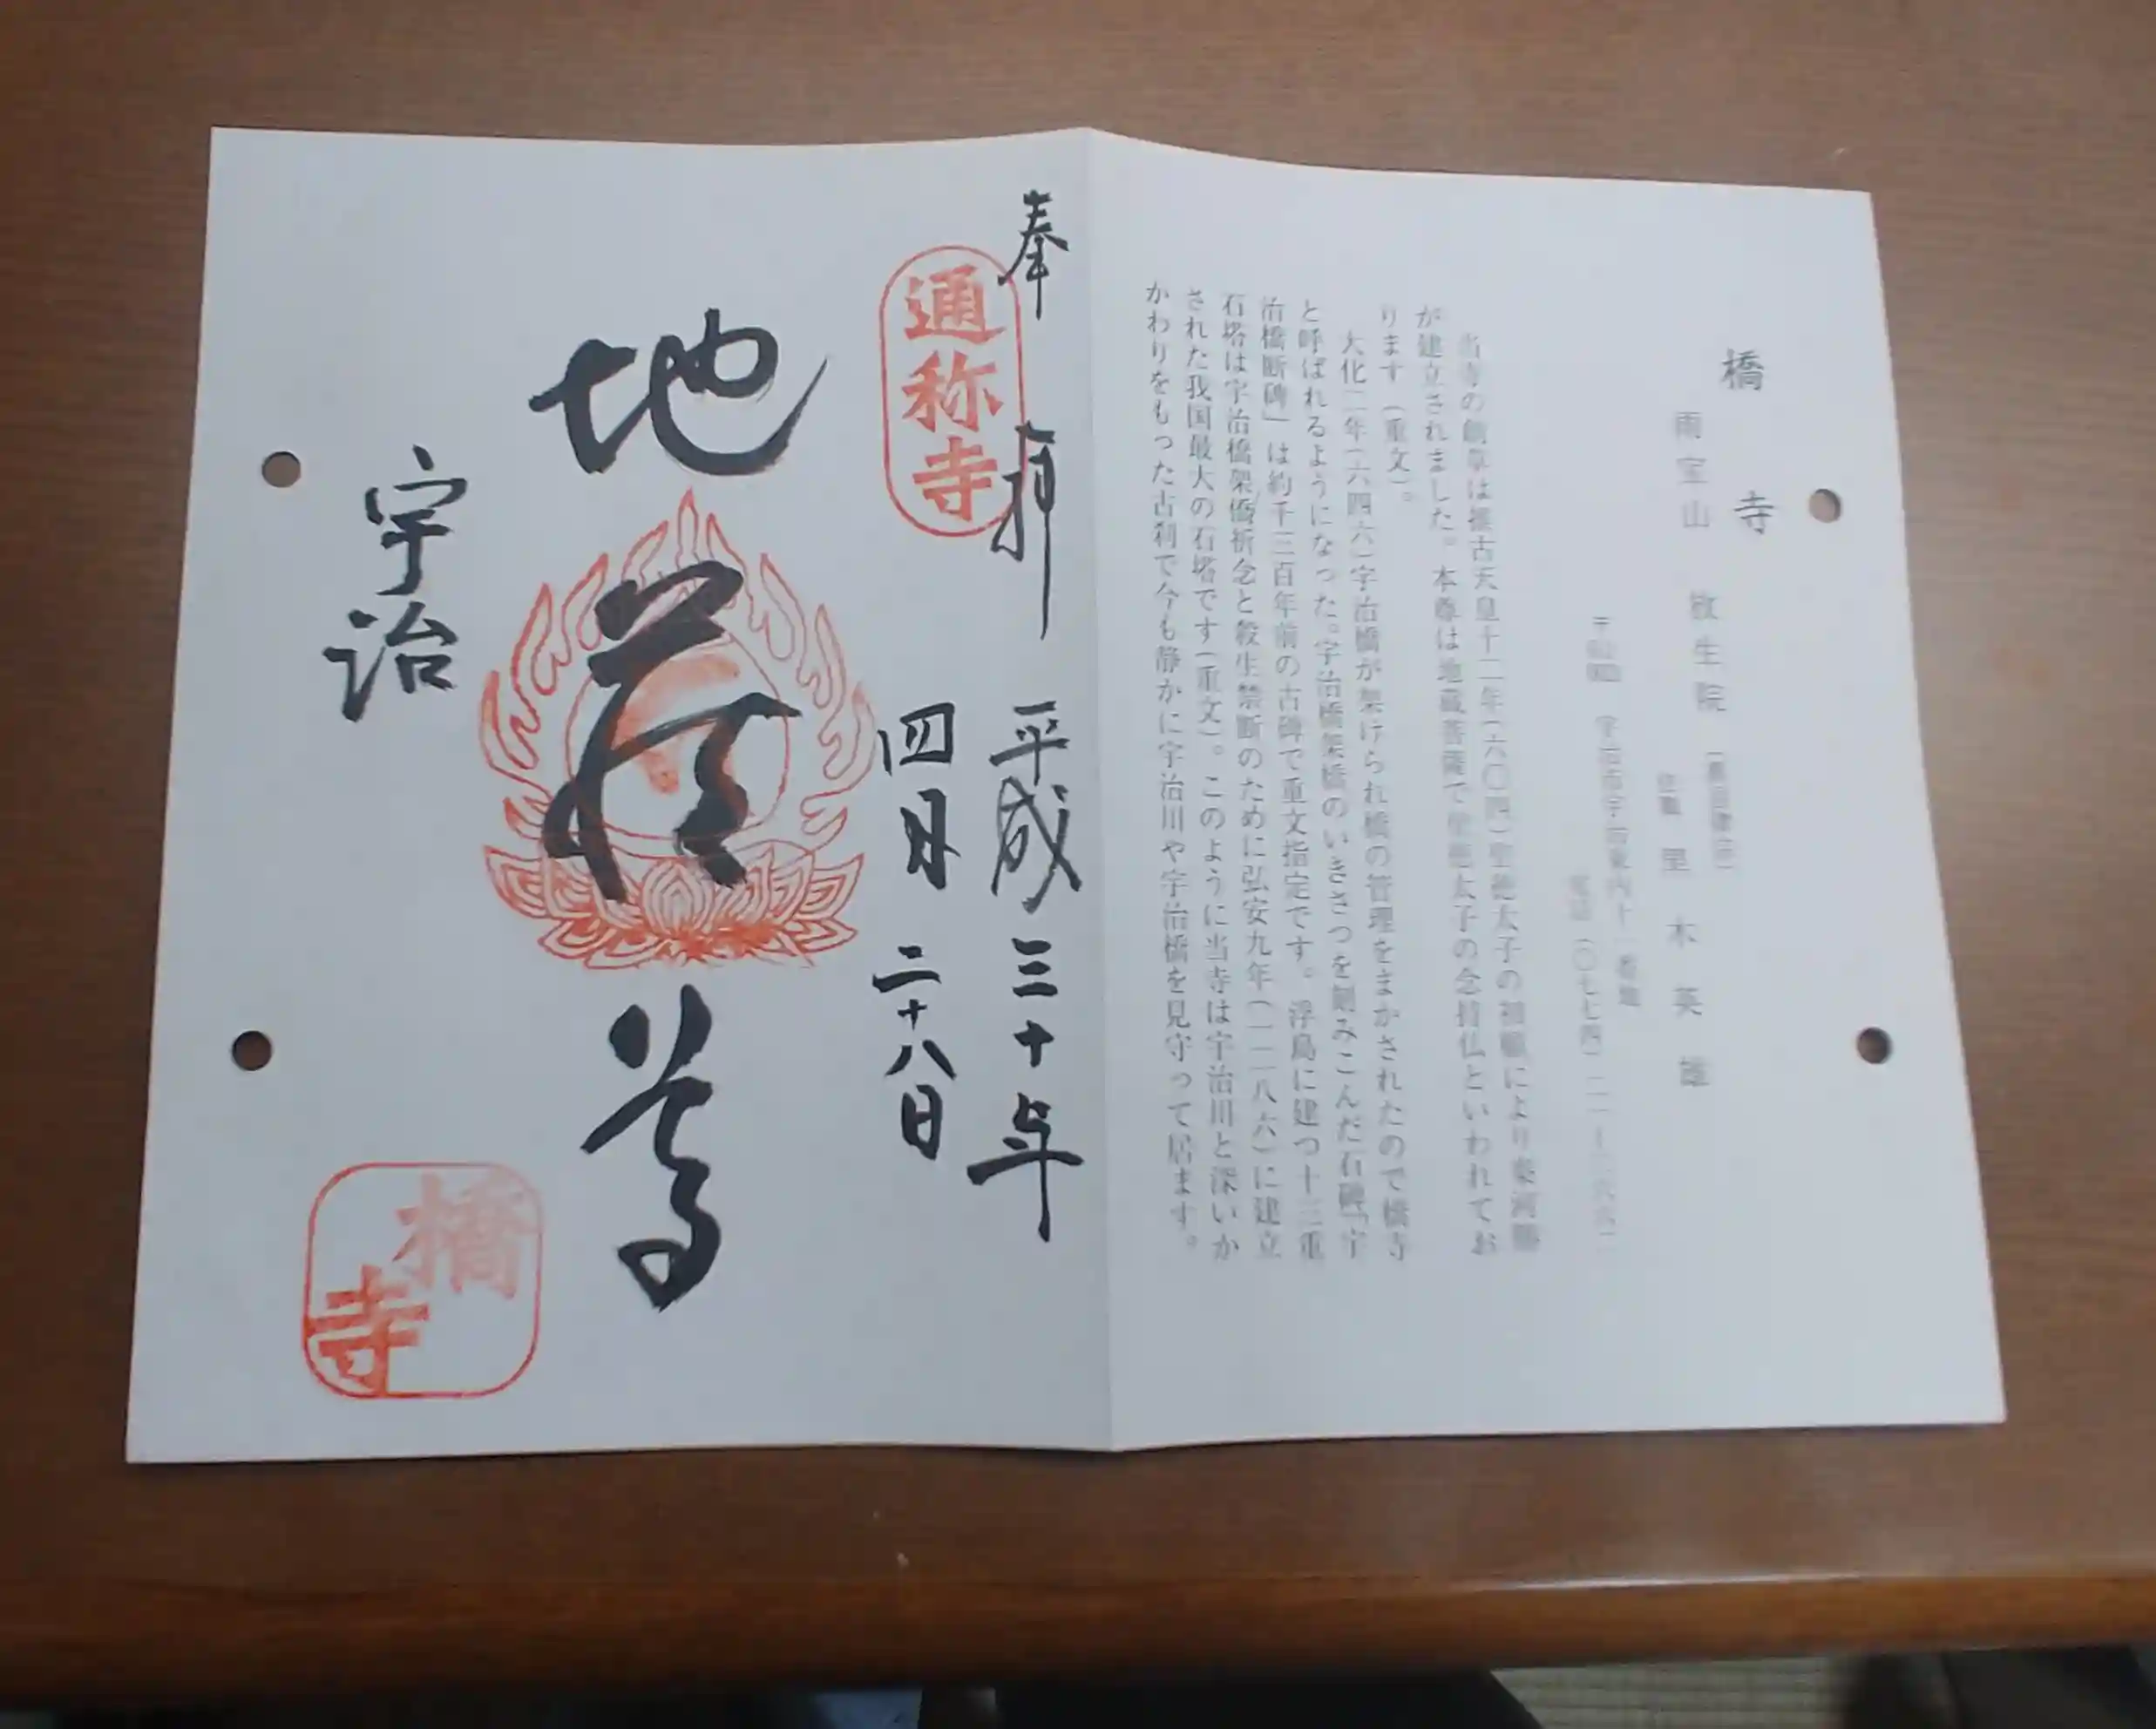 橋寺
雨宝山 放生院
住職 里木英雄
当寺の創草は推古天皇十二年(六〇四)聖徳太子の祖願により秦河勝
が建立されました。本尊は地蔵菩薩で聖徳太子の念持仏といわれてお
ります(重文)。
大化二年(六四六)宇治橋が架けられ橋の管理をまかされたので橋寺
と呼ばれるようになった。宇治橋架橋のいきさつを刻みこんだ石碑「宇
治橋断碑」は約千三百年前の古碑で重文指定です。浮島に建つ十三重
石塔は宇治橋架僑祈念と殺生禁断のために弘安九年(一二八六)に建立
された我国最大の石塔です(重文)。このように当寺は宇治川と深いか
かわりをもった古刹で今も静かに宇治川や宇治橋を見守って居ます。
奉拝 平成三十年
通称寺
四月二十八日
地蔵尊
宇治
橋寺